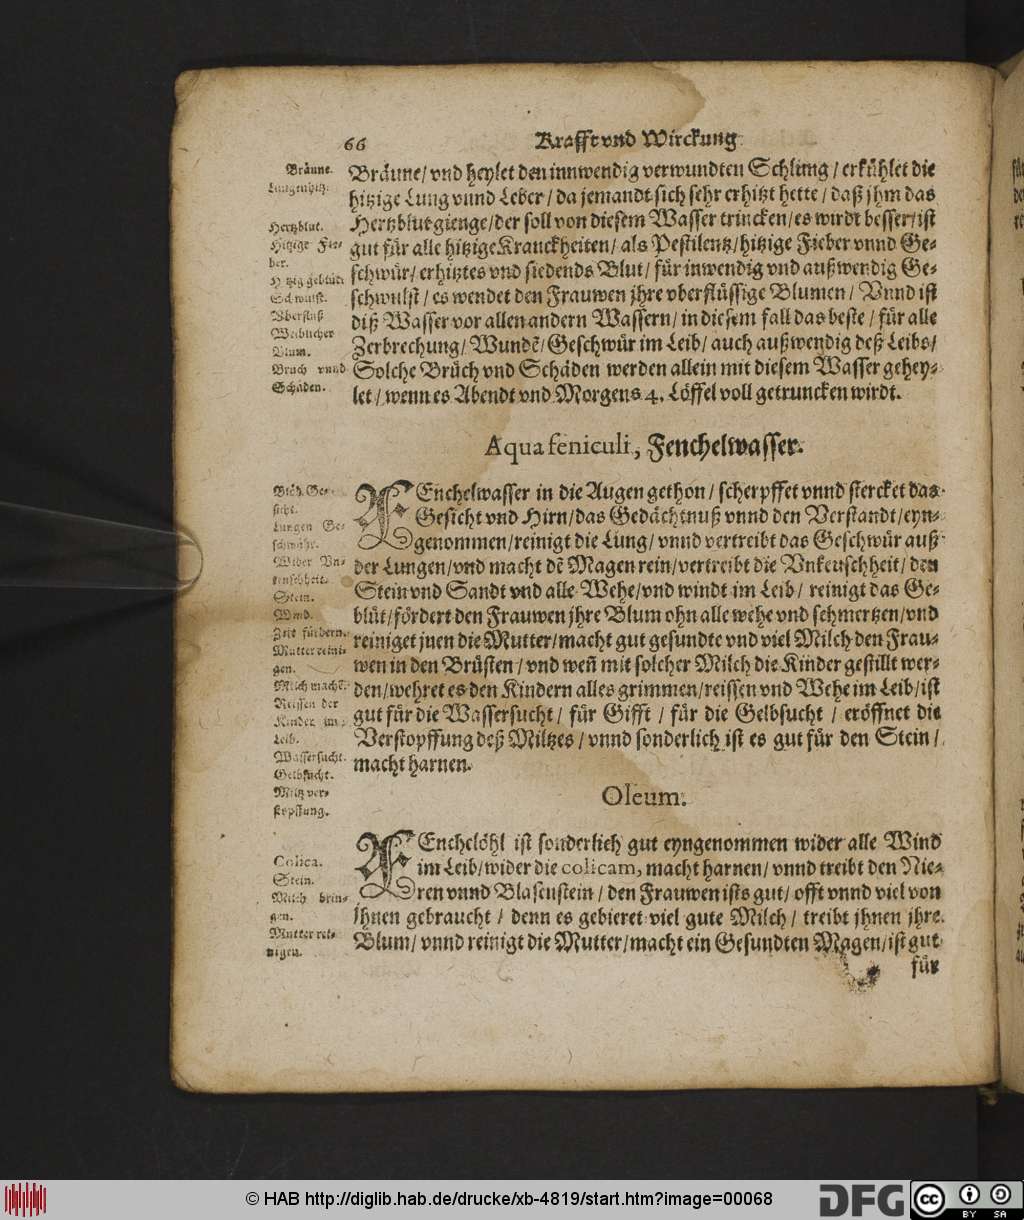 66
Krafft vnd Wirckung
Bräune.
Lungenhitz.
Hertzblut.
Hitzige Fie-
ber.
Hitzig geblüt.
Schwulst.
Vberfluß
Weibischer
Blum.
Bruch vnnd
Schäden.
Bräune/ vnd heylet den innwendig verwundten Schlung/ erkühlet die
hitzige Lung vnnd Leber/ da jemandt sich sehr erhitzt hette/ daß jhm das
Hertzblut gienge/ der soll von diesem Wasser trincken/ es wirdt besser/ ist
gut für alle hitzige Kranckheiten/ als Pestilentz/ hitzige Fieber vnnd Ge-
schwür/ erhitztes vnd siedends Blut/ für inwendig vnd außwendig Ge-
schwulst/ es wendet den Frauwen jhre vberflüssige Blumen/ Vnnd ist
diß Wasser vor allen andern Wassern/ in diesem fall das beste/ für alle
Zerbrechung/ Wundē/ Geschwür im Leib/ auch außwendig deß Leibs/
Solche Brüch vnd Schäden werden allein mit diesem Wasser gehey-
let/ wenn es Abendt vnd Morgens 4. Löffel voll getruncken wirdt.
Aqua feniculi, Fenchelwasser.
Blöd Ge-
sicht.
Lungen Ge-
schwär.
Wider Vn-
keuschheit.
Stein.
Wind.
Zeit fürdern.
Mutter reini-
gen.
Milch machē.
Reissen der
Kinder im
Leib.
Wassersucht.
Gelbsucht.
Miltz ver-
stopffung.
FEnchelwasser in die Augen gethon/ scherpffet vnnd stercket das
Gesicht vnd Hirn/ das Gedächtnuß vnnd den Verstandt/ eyn-
genommen/ reinigt die Lung/ vnnd vertreibt das Geschwür auß
der Lungen/ vnd macht dē Magen rein/ vertreibt die Vnkeuschheit/ den
Stein vnd Sandt vnd alle Wehe/ vnd windt im Leib/ reinigt das Ge-
blüt/ fördert den Frauwen jhre Blum ohn alle wehe vnd schmertzen/ vnd
reiniget jnen die Mutter/ macht gut gesundte vnd viel Milch den Frau-
wen in den Brüsten/ vnd weñ mit solcher Milch die Kinder gestillt wer-
den/ wehret es den Kindern alles grimmen/ reissen vnd Wehe im Leib/ ist
gut für die Wassersucht/ für Gifft/ für die Gelbsucht/ eröffnet die
Verstopffung deß Miltzes/ vnnd sonderlich ist es gut für den Stein/
macht harnen.
Oleum.
Colica.
Stein.
Milch brin-
gen.
Mutter rei-
nigen.
FEnchelöhl ist sonderlich gut eyngenommen wider alle Wind
im Leib/ wider die colicam, macht harnen/ vnnd treibt den Nie-
ren vnnd Blasenstein/ den Frauwen ists gut/ offt vnnd viel von
jhnen gebraucht/ denn es gebieret viel gute Milch/ treibt jhnen jhre
Blum/ vnnd reinigt die Mutter/ macht ein Gesundten Magen/ ist gut
für
© HAB http://diglib.hab.de/drucke/xb-4819/start.htm?image=00068
DFG
cc
BY SA